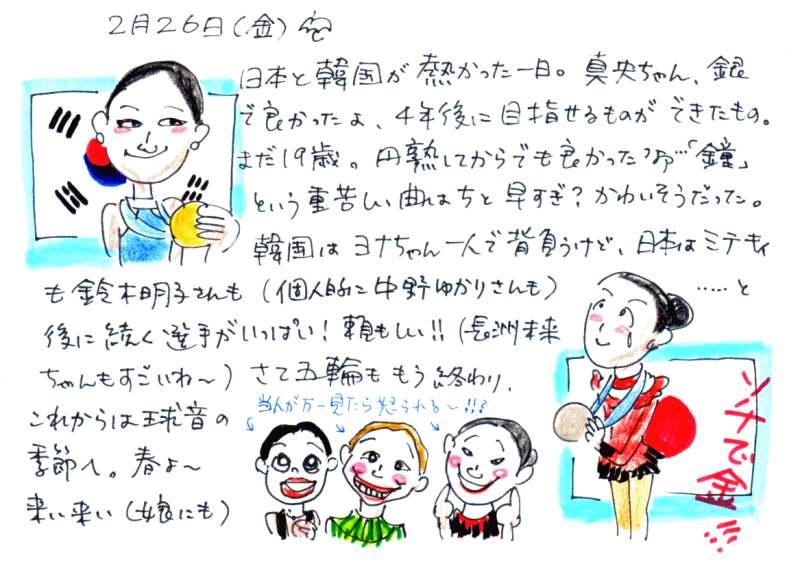 2月26日(金)
日本と韓国が熱かった一日。真央ちゃん、銀
で良かったよ、4年後に目指せるものができたもの。
まだ19歳。円熟してからでも良かった…「鐘」
という重苦しい曲はちと早すぎ?かわいそうだった。
韓国はヨナちゃん一人で背負うけど、日本はミキティ
も鈴木明子さんも(個人的に中野ゆかりさんも)……と
後に続く選手がいっぱい!頼もしい!!(長洲未来
ちゃんもすごいね〜)さて五輪ももう終わり、
これからは球音の
季節へ。春よ〜
来い来い(娘にも)
当人が万一見たら怒られる〜!!?
ソチで金!!!